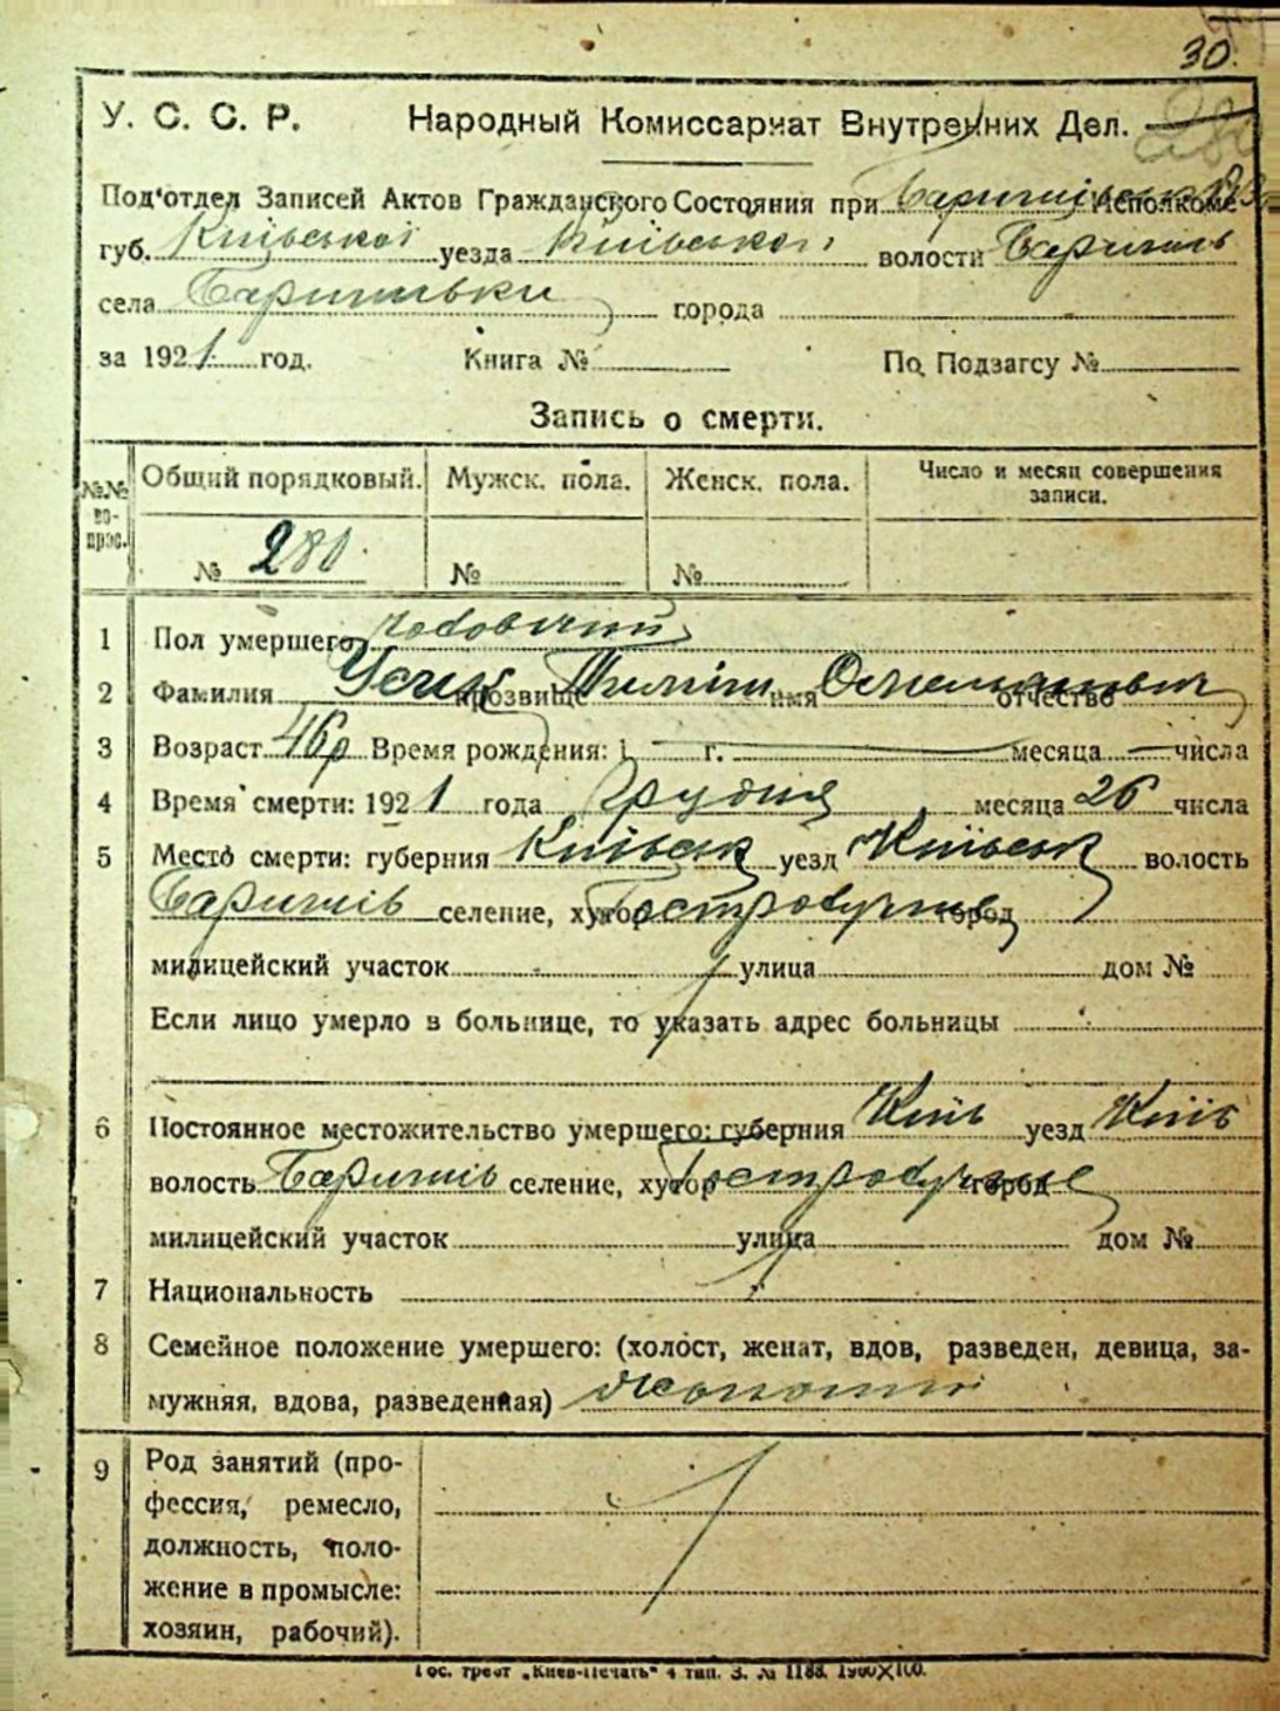 30.
У. С. С. Р. Народный Комиссариат Внутренних Дел.
Под'отдел Записей Актов Гражданского Состояния при Исполкоме
губ. Київської уезда Київської волости Баришів
села Баришівки города
за 1921 год. Книга № По Подзагсу №
Запись о смерти.
№№ вопрос. Общий порядковый. Мужск. пола. Женск. пола. Число и месяц совершения записи.
№ 280 № №
1 Пол умершего чоловічий
2 Фамилия Усик прозвище имя отчество
3 Возраст 46 р Время рождения: 1 г. — месяца — числа
4 Время смерти: 1921 года Грудня месяца 26 числа
5 Место смерти: губерния Київськ уезд Київськ волость
Баришів селение, хутор город
милицейский участок улица дом №
Если лицо умерло в больнице, то указать адрес больницы
6 Постоянное местожительство умершего: губерния Київ уезд Київ
волость Баришів селение, хутор город
милицейский участок улица дом №
7 Национальность
8 Семейное положение умершего: (холост, женат, вдов, разведен, девица, за-
мужняя, вдова, разведенная)
9 Род занятий (про-
фессия, ремесло,
должность, поло-
жение в промысле:
хозяин, рабочий).
Гос. трест „Киев-Печать“ 4 тип. З. № 1188.